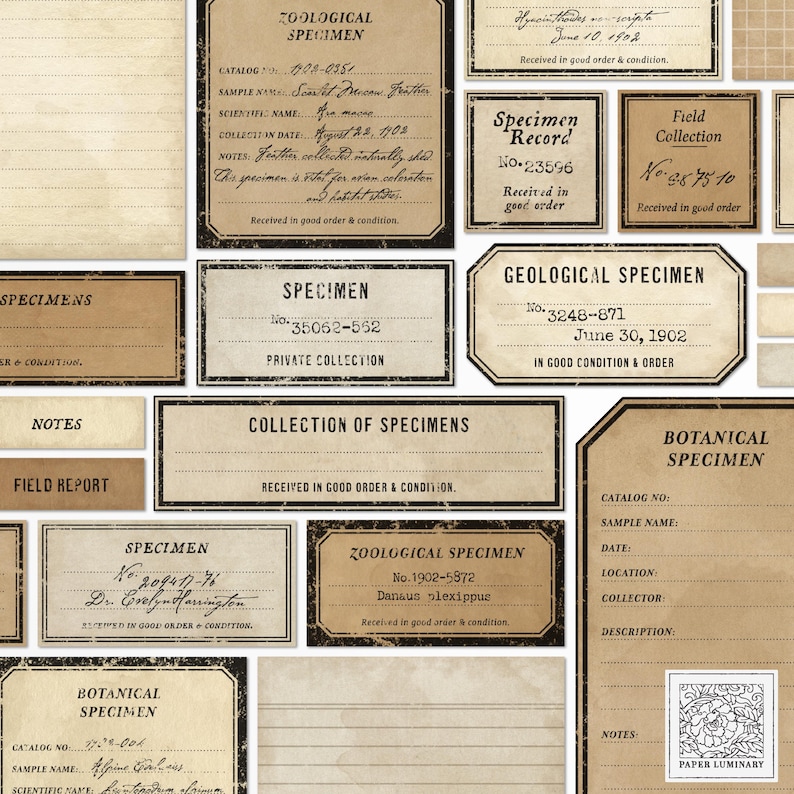 ZOOLOGICAL
SPECIMEN
CATALOG NO: 1902-0351
SAMPLE NAME: Scarlet Macaw Feather
SCIENTIFIC NAME: Ara macao
COLLECTION DATE: August 22, 1902
NOTES: Feather collected naturally shed.
This specimen is vital for avian coloration
and habitat studies.
Received in good order & condition.
Hyacinthoides non-scripta
June 10, 1902
Received in good order & condition.
Specimen
Record
No. 23596
Received in
good order
Field
Collection
No. 987510
Received in good order
SPECIMENS
& CONDITION.
SPECIMEN
No. 35062-562
PRIVATE COLLECTION
GEOLOGICAL SPECIMEN
No. 3248-871
June 30, 1902
IN GOOD CONDITION & ORDER
NOTES
FIELD REPORT
COLLECTION OF SPECIMENS
RECEIVED IN GOOD ORDER & CONDITION.
BOTANICAL
SPECIMEN
CATALOG NO:
SAMPLE NAME:
DATE:
LOCATION:
COLLECTOR:
DESCRIPTION:
NOTES:
SPECIMEN
No: 209417-76
Dr. Evelyn Harrington
RECEIVED IN GOOD ORDER & CONDITION.
ZOOLOGICAL SPECIMEN
No.1902-5872
Danaus plexippus
Received in good order & condition.
BOTANICAL
SPECIMEN
CATALOG NO:
SAMPLE NAME: Alpine Edelweiss
SCIENTIFIC NAME: Leontopodium alpinum
PAPER LUMINARY